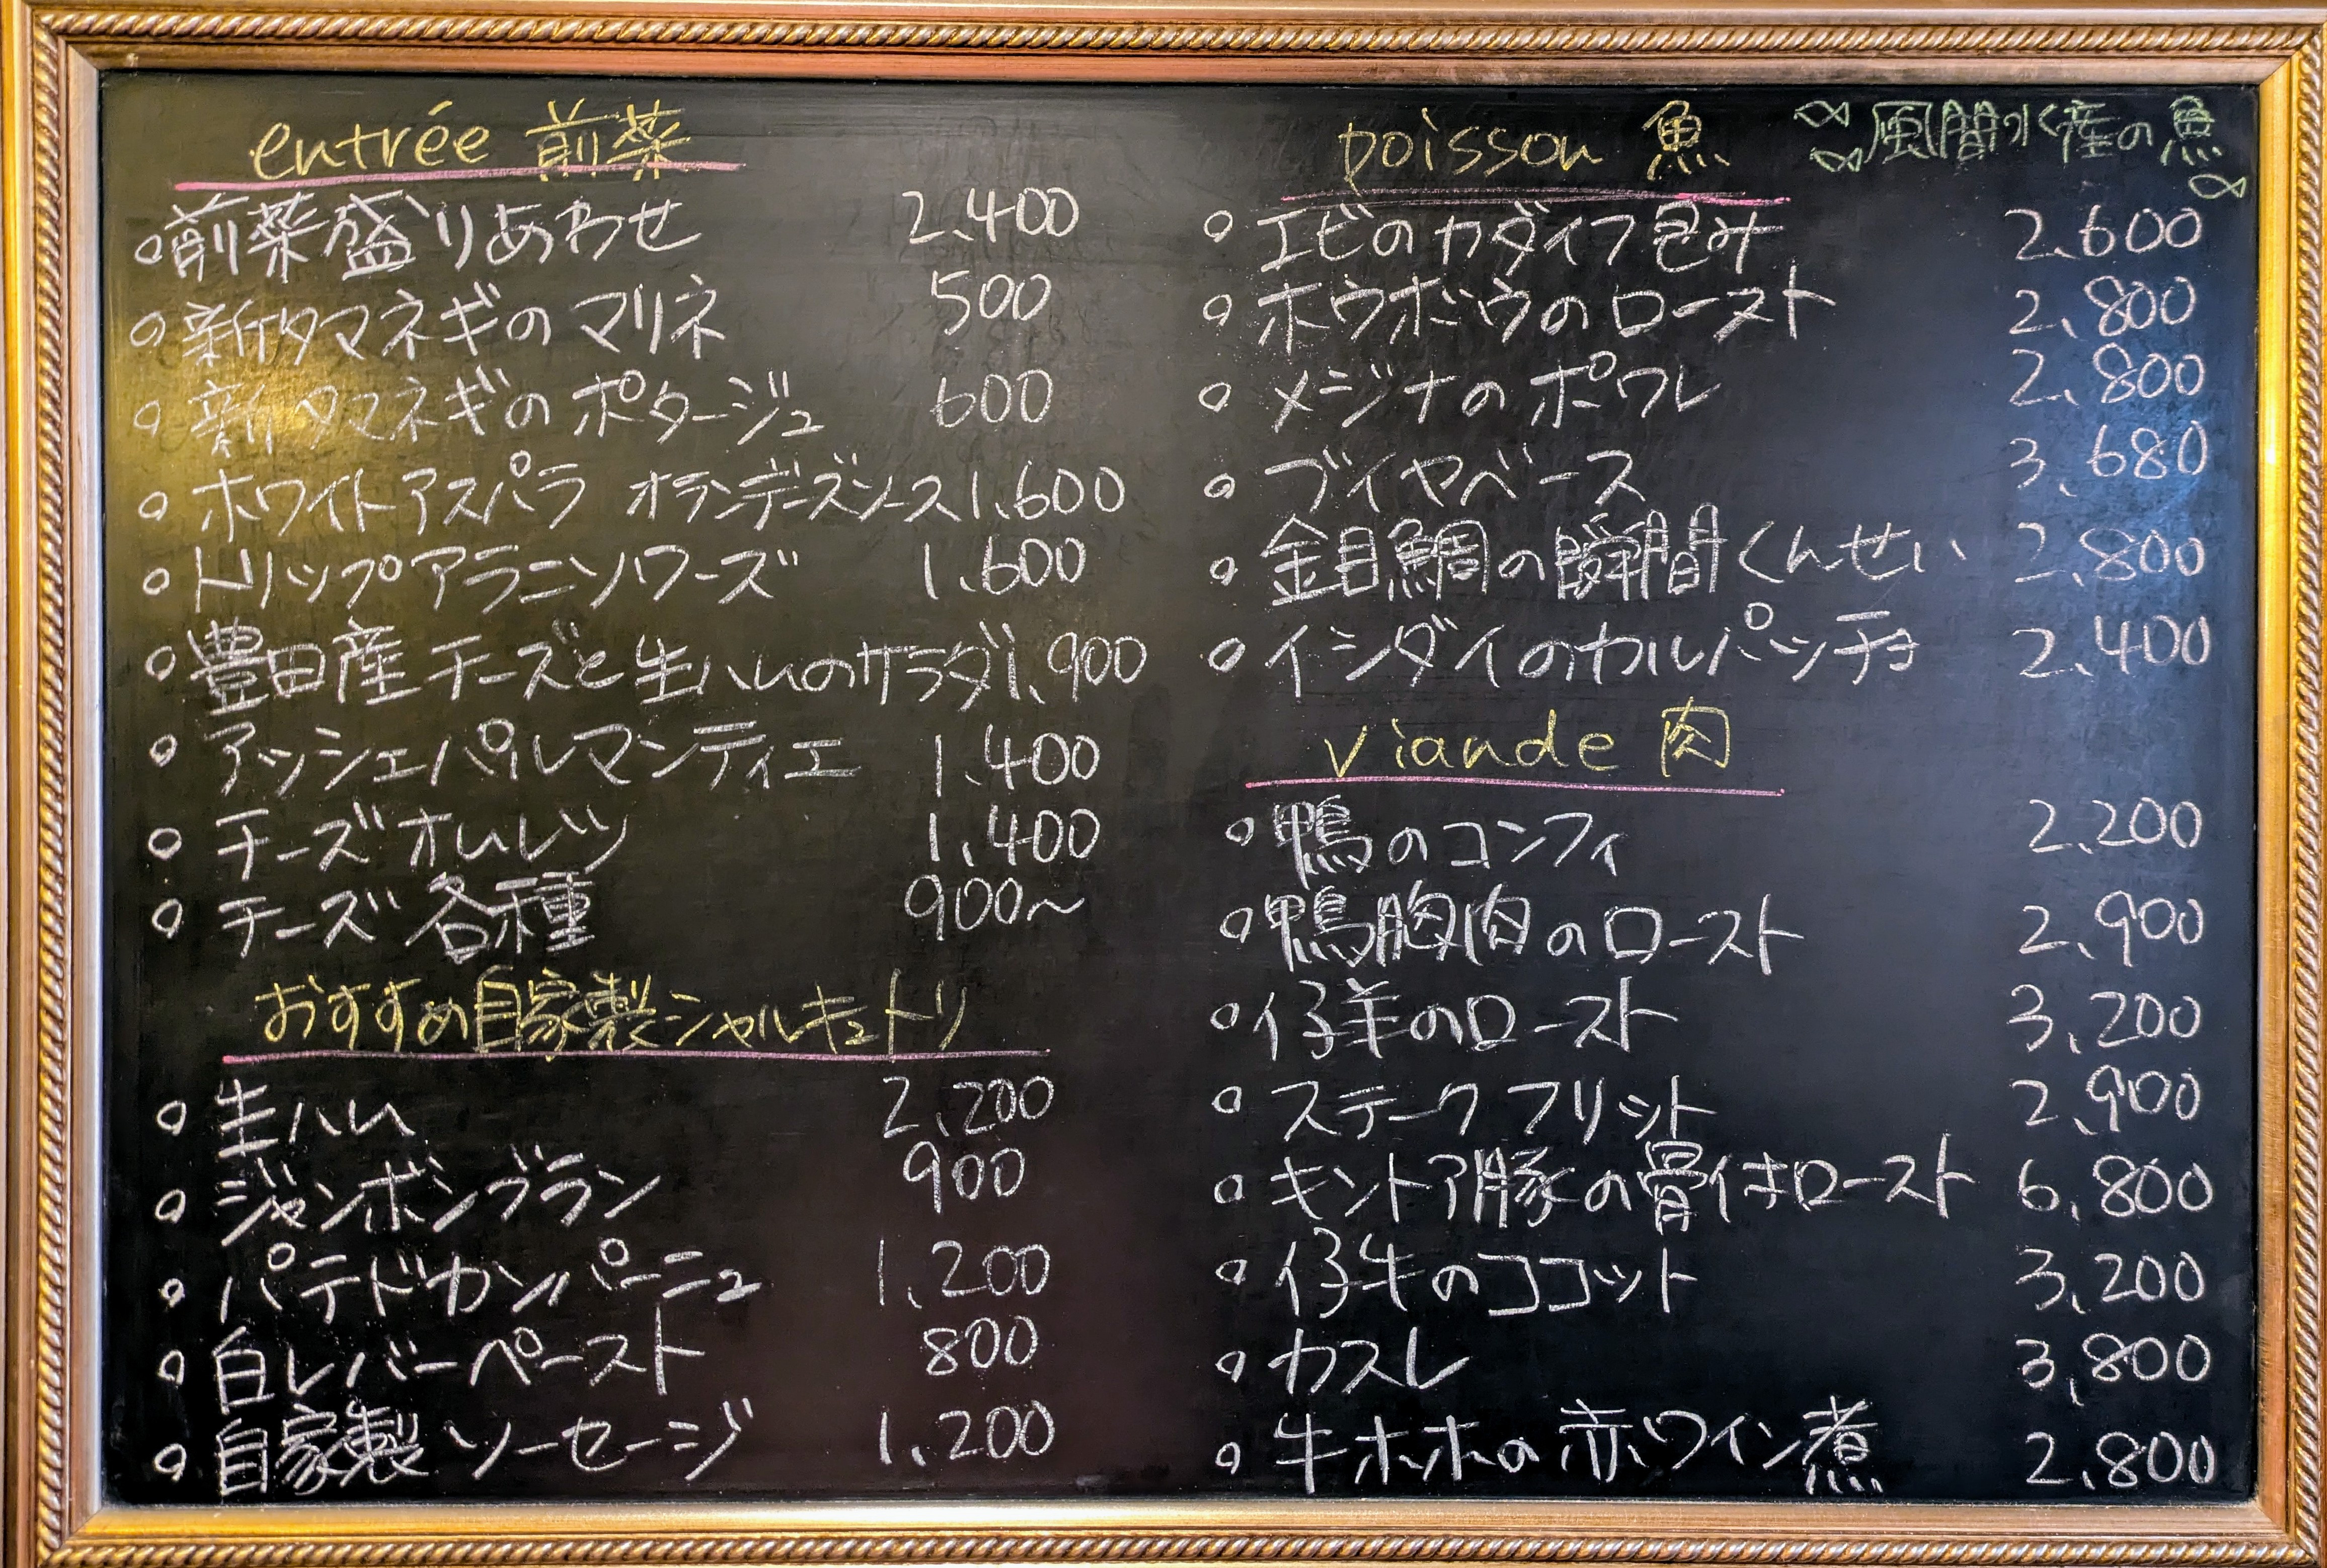 entrée 前菜
前菜盛りあわせ 2.400
新タマネギのマリネ 500
新タマネギのポタージュ 600
ホワイトアスパラ オランデーズソース 1.600
トリップアラニソワーズ 1.600
豊田産チーズと生ハムのサラダ 1.900
アッシェパルマンティエ 1.400
チーズオムレツ 1.400
チーズ各種 900~
おすすめ自家製シャルキュトリ
生ハム 2,200
ジャンボンブラン 900
パテドカンパーニュ 1,200
白レバーペースト 800
自家製ソーセージ 1,200
poisson 魚 風間水産の魚
エビのカダイフ包み 2.600
ホウボウのロースト 2,800
メジナのポワレ 2,800
ブイヤベース 3,680
金目鯛の瞬間くんせい 2,800
イシダイのカルパッチョ 2,400
viande 肉
鴨のコンフィ 2,200
鴨胸肉のロースト 2,900
仔羊のロースト 3,200
ステークフリット 2,900
キントア豚の骨付きロースト 6,800
仔牛のココット 3,200
カスレ 3,800
牛ホホの赤ワイン煮 2,800